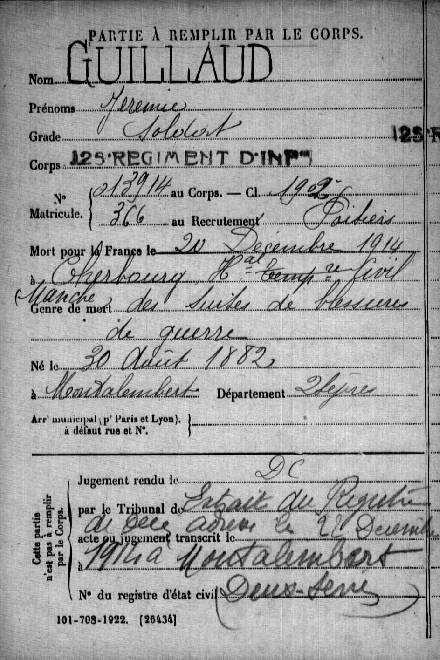 PARTIE À REMPLIR PAR LE CORPS.
Nom GUILLAUD
Prénoms Jeremie
Grade Soldat
Corps 125e REGIMENT D'INFie 125e R
N° Matricule. 013914 au Corps. — Cl. 1902
366 au Recrutement Poitiers
Mort pour la France le 20 Décembre 1914
à Cherbourg Hal temp re Civil
(Manche)
Genre de mort des suites de blessures
de guerre
Né le 30 Août 1882
à Montalembert Département 2 Sèvres
Arrt municipal (pr Paris et Lyon), à défaut rue et N°.
Cette partie n'est pas à remplir par le Corps.
Jugement rendu le DC
par le Tribunal de Extrait du Registre
de décè adressé le 28 Décembre
acte ou jugement transcrit le
1914 à Montalembert
N° du registre d'état civil (Deux-Sèvres)
101-708-1922. [26434]